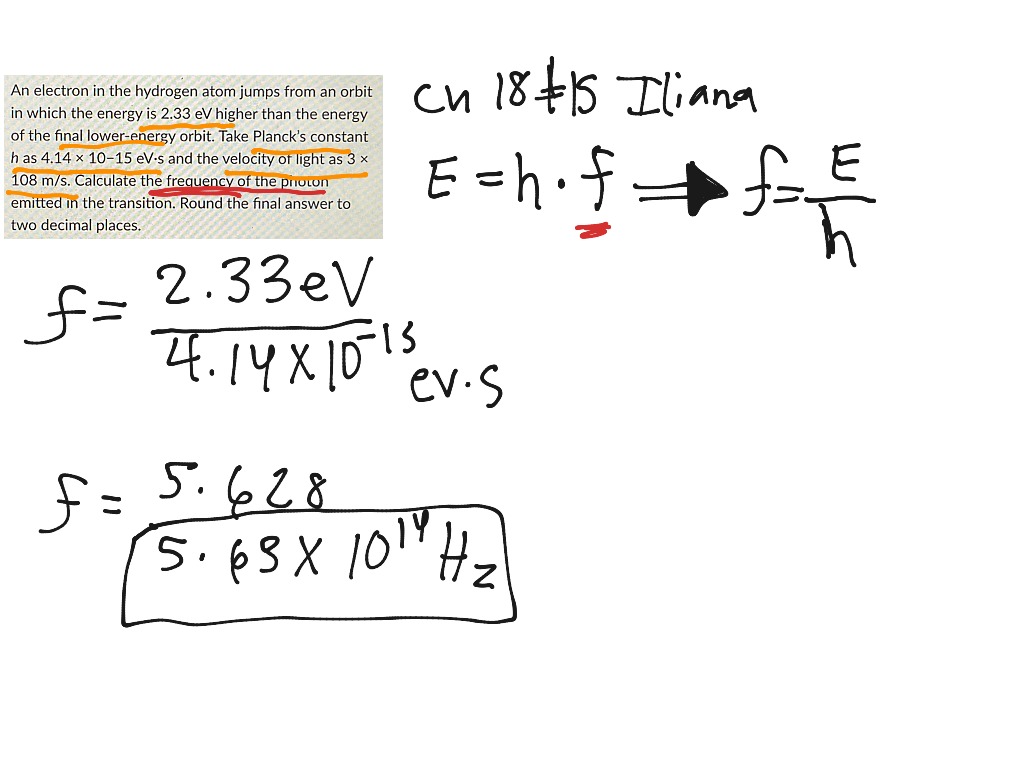 An electron in the hydrogen atom jumps from an orbit
in which the energy is 2.33 eV higher than the energy
of the final lower-energy orbit. Take Planck's constant
h as 4.14 × 10−15 eV·s and the velocity of light as 3 ×
108 m/s. Calculate the frequency of the photon
emitted in the transition. Round the final answer to
two decimal places.
CH 18 #15 Iliana
E = h · f ⟹ f = E/h
f = 2.33 eV
4.14 X 10^-15 ev·s
f = 5.628
5.63 X 10^14 Hz